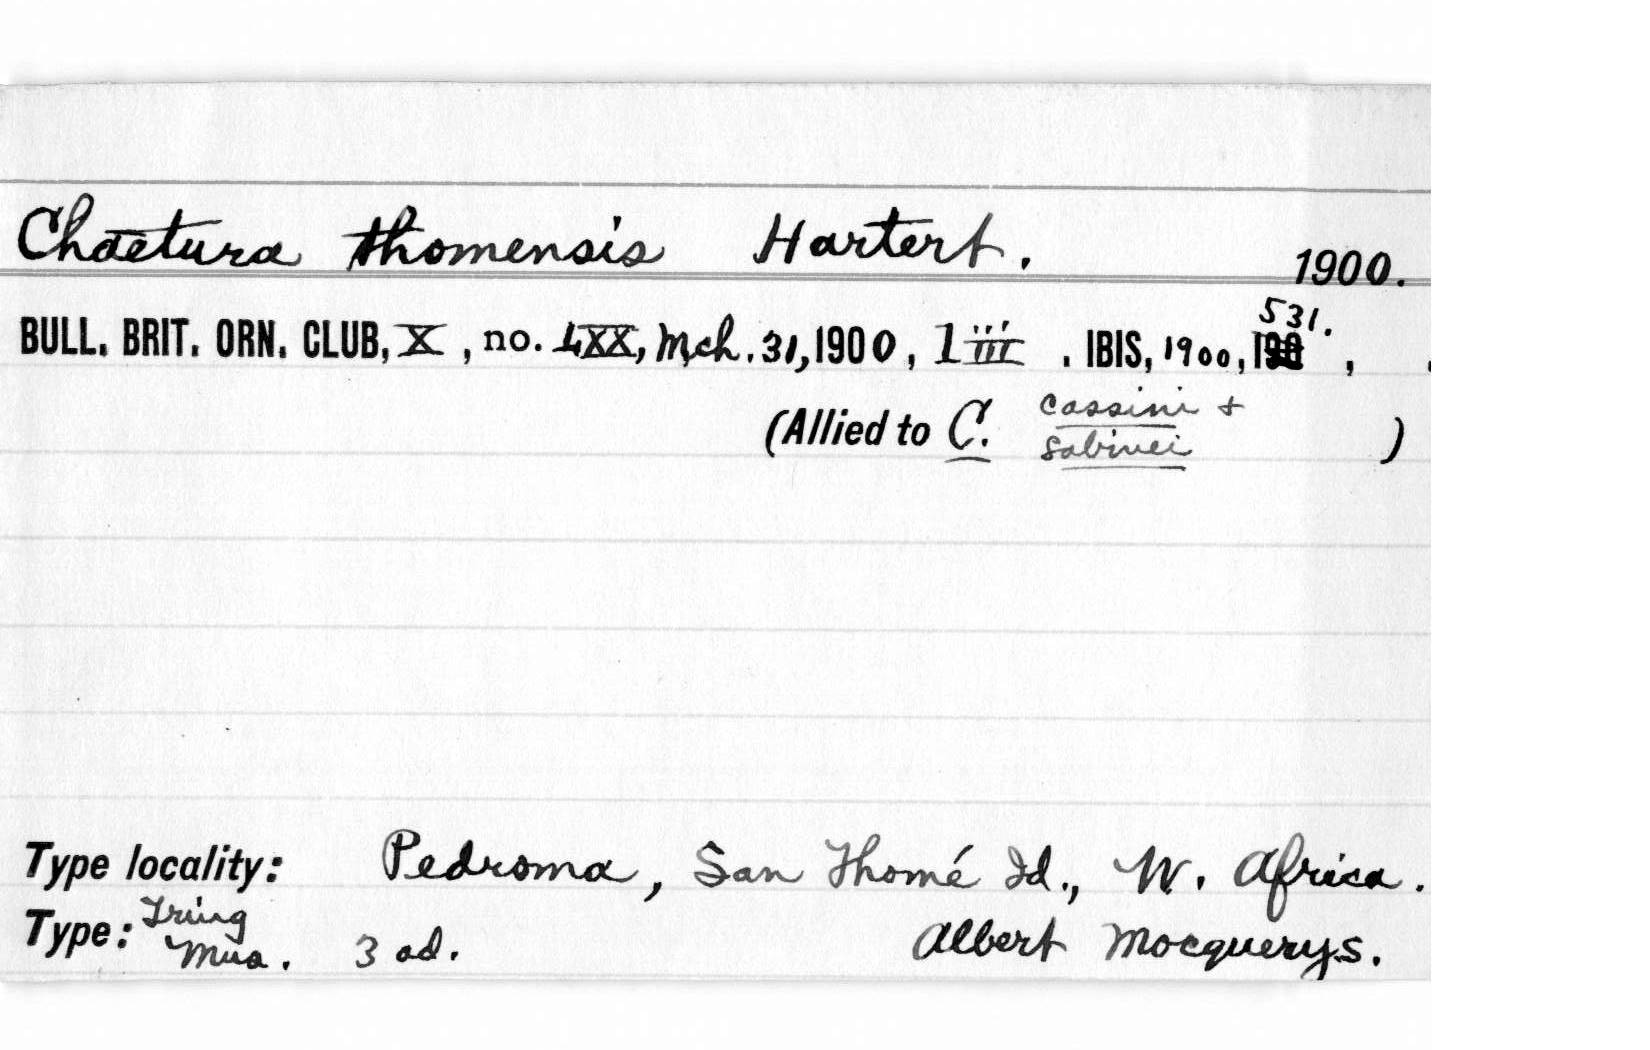 Chaetura thomensis Hartert. 1900.
BULL. BRIT. ORN. CLUB, X, no. LXX, Mch. 31, 1900, liii. IBIS, 1900, 531.,
(Allied to C. cassini & sabinei)
Type locality: Pedroma, San Thomé Id., W. Africa.
Type: Tring Mus. 3 ad. Albert Mocquerys.